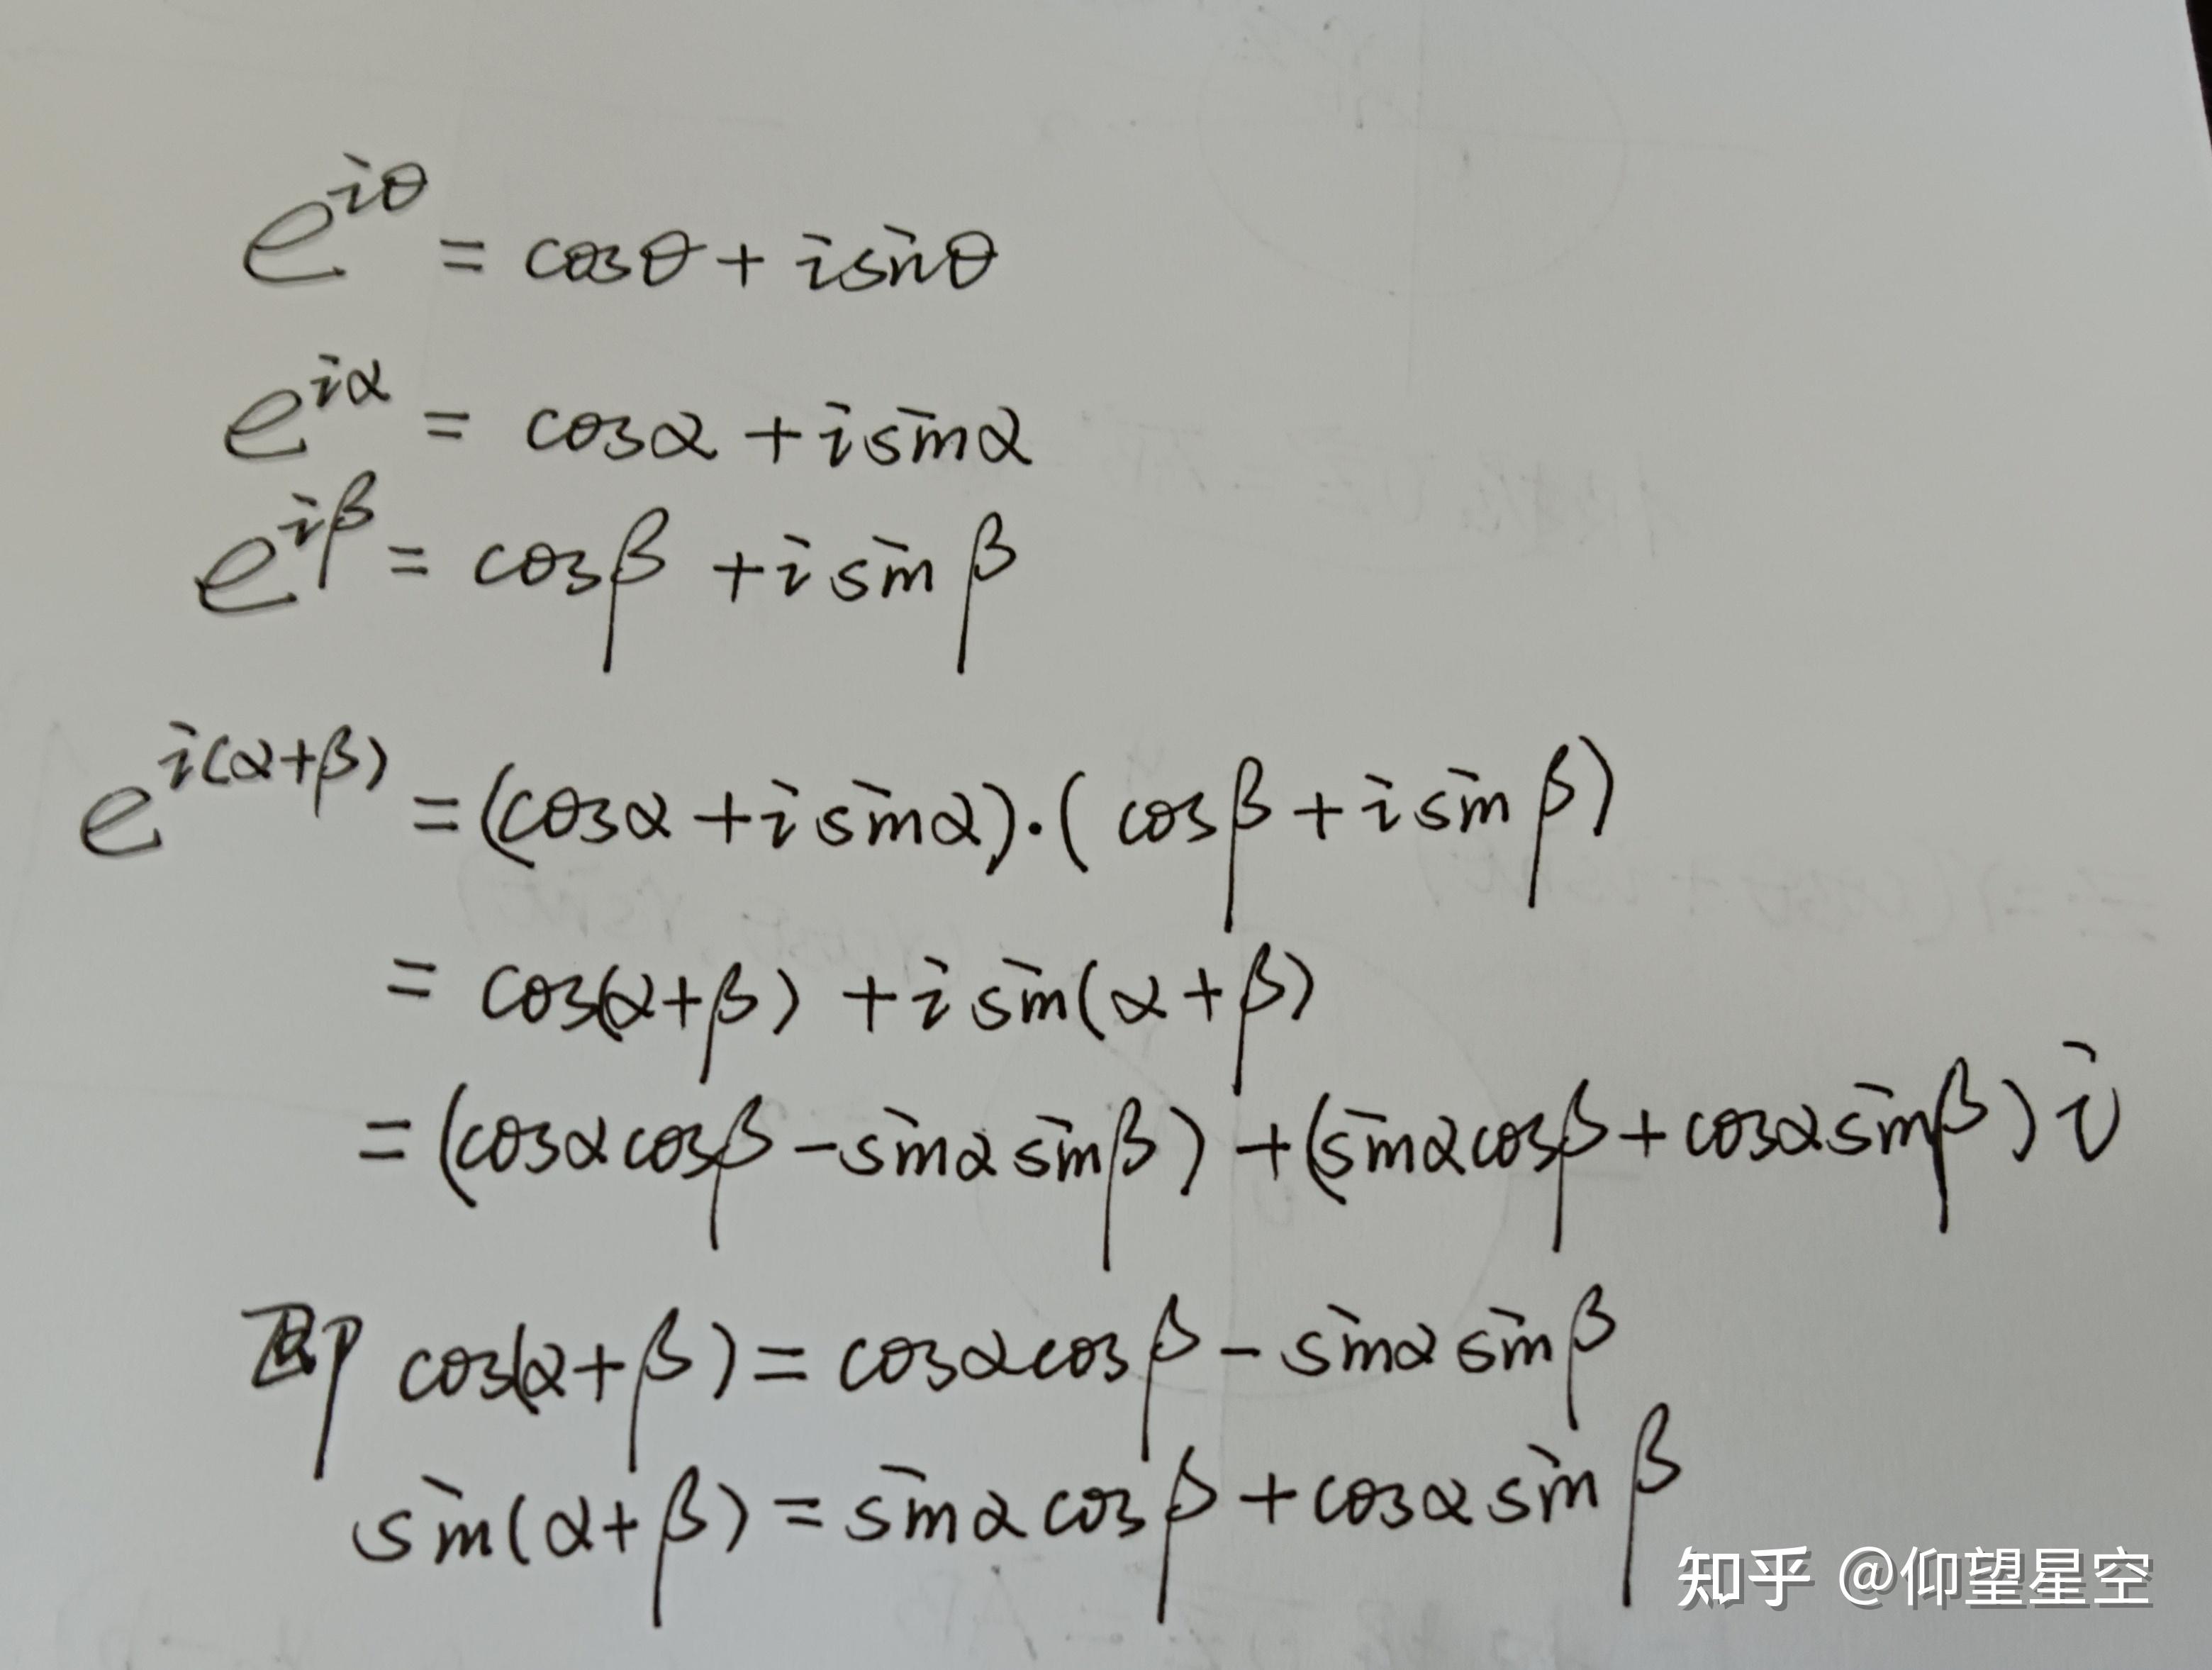 e^{iθ} = cosθ + isinθ
e^{iα} = cosα + isinα
e^{iβ} = cosβ + isinβ
e^{i(α+β)} = (cosα + isinα)·(cosβ + isinβ)
= cos(α+β) + isin(α+β)
= (cosαcosβ - sinαsinβ) + (sinαcosβ + cosαsinβ)i
即 cos(α+β) = cosαcosβ - sinαsinβ
sin(α+β) = sinαcosβ + cosαsinβ
知乎 @仰望星空